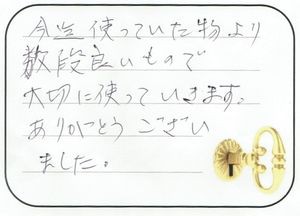 今迄使っていた物より
数段良いもので
大切に使っていきます。
ありがとうござい
ました。